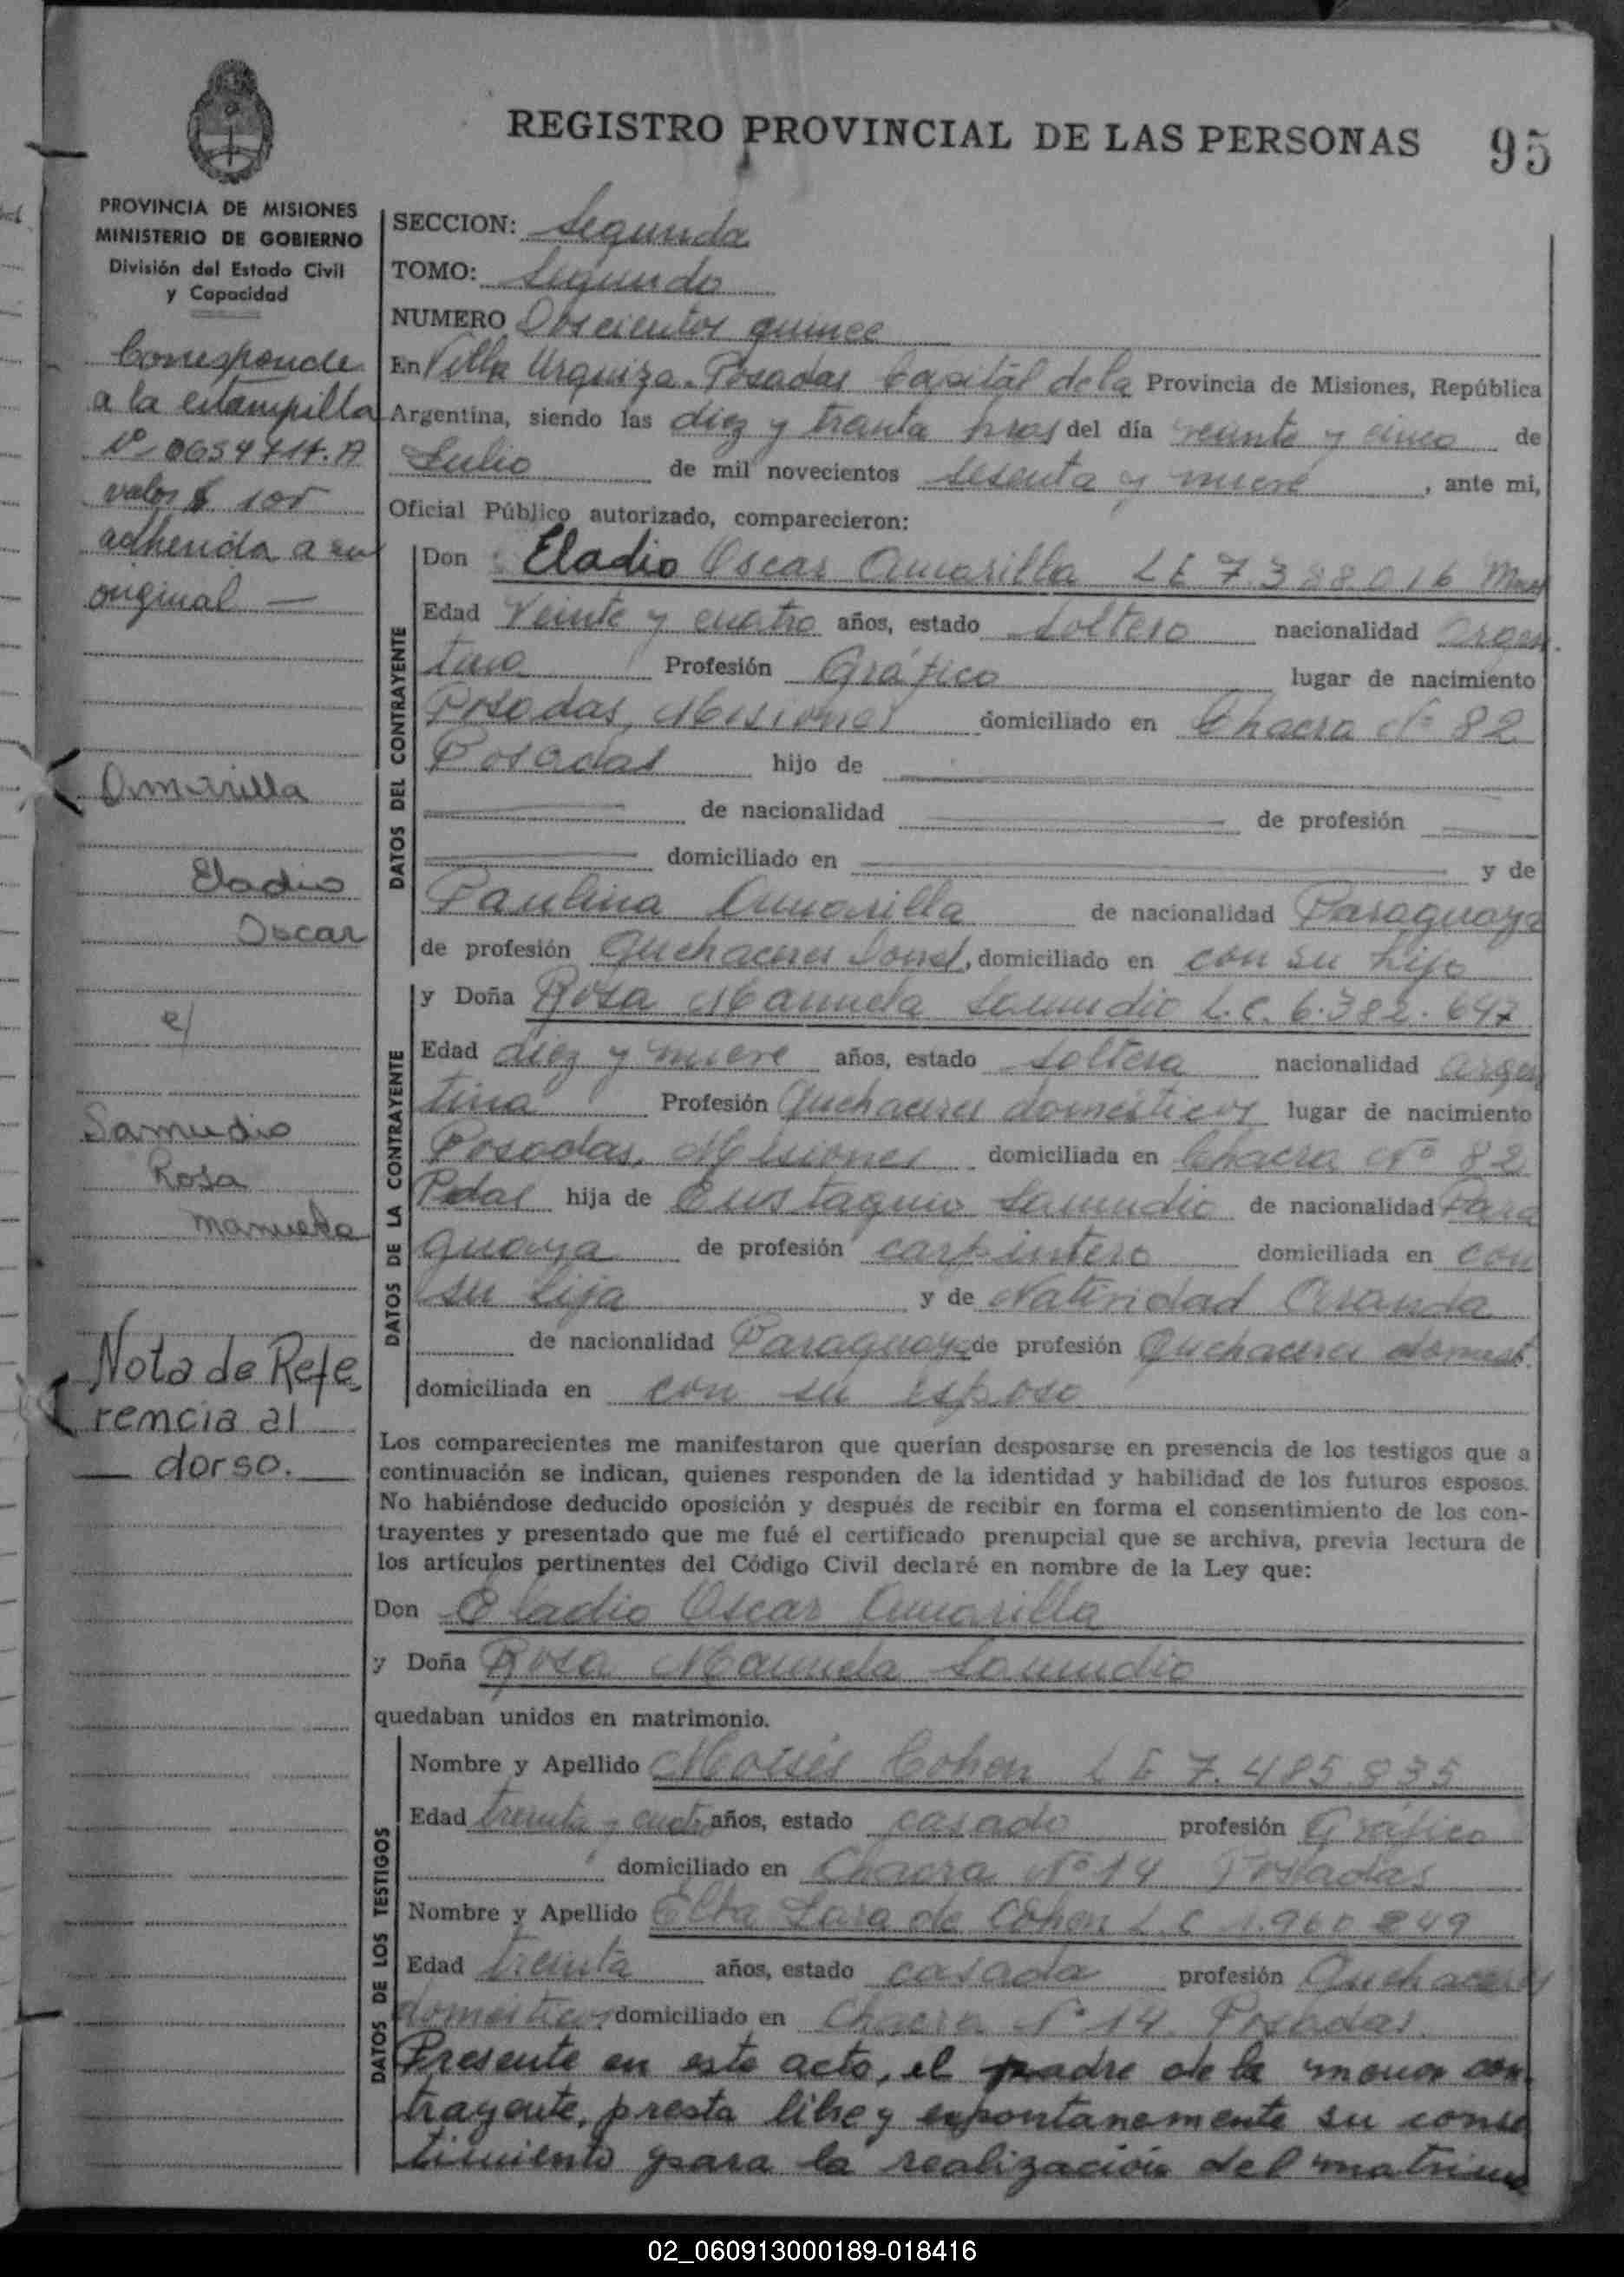 REGISTRO PROVINCIAL DE LAS PERSONAS 95
PROVINCIA DE MISIONES
MINISTERIO DE GOBIERNO
División del Estado Civil
y Capacidad
Corresponde
a la estampilla
valor $ 100
adherida a su
original —
Amarilla
Eladio
Oscar
c/
Samudio
Rosa
Manuela
Nota de Refe
rencia al
dorso.
SECCION: Segunda
TOMO: Segundo
NUMERO Doscientos quince
En Villa Urquiza. Posadas Capital de la Provincia de Misiones, República
Argentina, siendo las diez y treinta hras del día veinte y cinco de
Julio de mil novecientos sesenta y nueve, ante mi,
Oficial Público autorizado, comparecieron:
DATOS DEL CONTRAYENTE
Don Eladio Oscar Amarilla LE 7.388.016
Edad Veinte y cuatro años, estado Soltero nacionalidad Argen
tino Profesión Gráfico lugar de nacimiento
Posadas, Misiones domiciliado en Chacra Nº 82
Posadas hijo de
de nacionalidad de profesión
domiciliado en y de
Paulina Amarilla de nacionalidad Paraguaya
de profesión Quehaceres Domest, domiciliado en con su hijo
DATOS DE LA CONTRAYENTE
y Doña Rosa Manuela Samudio L.C. 6.382.647
Edad diez y nueve años, estado Soltera nacionalidad Argen
tina Profesión Quehaceres domésticos lugar de nacimiento
Posadas, Misiones domiciliada en Chacra Nº 82
Pdas hija de Eustaquio Samudio de nacionalidad Para
guaya de profesión carpintero domiciliada en con
su hija y de Natividad Aranda
de nacionalidad Paraguaya de profesión Quehaceres domest.
domiciliada en con su esposo
Los comparecientes me manifestaron que querían desposarse en presencia de los testigos que a
continuación se indican, quienes responden de la identidad y habilidad de los futuros esposos.
No habiéndose deducido oposición y después de recibir en forma el consentimiento de los con-
trayentes y presentado que me fué el certificado prenupcial que se archiva, previa lectura de
los artículos pertinentes del Código Civil declaré en nombre de la Ley que:
Don Eladio Oscar Amarilla
y Doña Rosa Manuela Samudio
quedaban unidos en matrimonio.
DATOS DE LOS TESTIGOS
Nombre y Apellido Moisés Cohen LE 7.485.835
Edad treinta y cuatro años, estado casado profesión Gráfico
domiciliado en Chacra Nº 14 Posadas
Nombre y Apellido Elba Lara de Cohen L.C
Edad treinta años, estado casada profesión Quehaceres
domésticos domiciliado en Chacra Nº 14 Posadas.
Presente en este acto, el padre de la menor con
trayente, presta libre y espontanemente su conse
timiento para la realización del matrimo
02_060913000189-018416